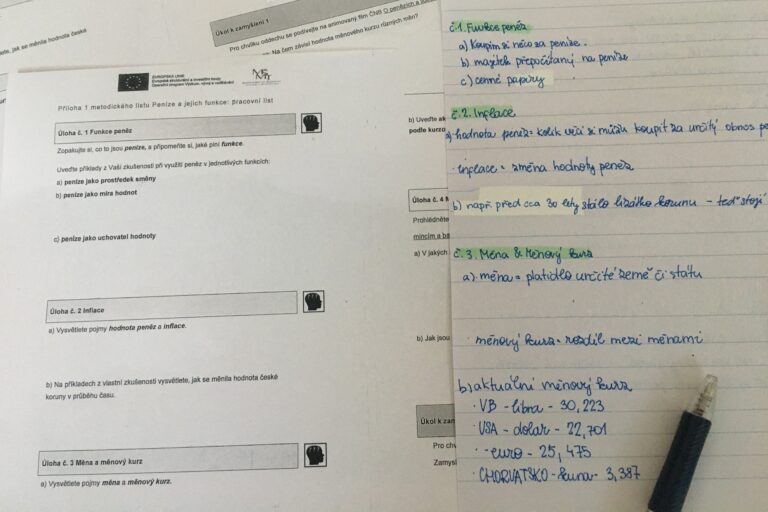 te, jak se měnila hodnota české
Úkol k zamyšlení 1
Pro chvilku oddechu se podívejte na animovaný film ČNB O penězích a
Na čem závisí hodnota měnového kurzu různých měn?
EVROPSKÁ UNIE
Evropské strukturální a investiční fondy
Operační program Výzkum, vývoj a vzdělávání
Příloha 1 metodického listu Peníze a jejich funkce: pracovní list
Úloha č. 1 Funkce peněz
Zopakujte si, co to jsou peníze, a připomeňte si, jaké plní funkce.
Uveďte příklady z Vaší zkušenosti při využití peněz v jednotlivých funkcích:
a) peníze jako prostředek směny
b) peníze jako míra hodnot
c) peníze jako uchovatel hodnoty
Úloha č. 2 Inflace
a) Vysvětlete pojmy hodnota peněz a inflace.
b) Na příkladech z vlastní zkušenosti vysvětlete, jak se měnila hodnota české
koruny v průběhu času.
Úloha č. 3 Měna a měnový kurz
a) Vysvětlete pojmy měna a měnový kurz.
b) Uveďte
podle kurzo
Úloha č. 4 M
Prohlédněte
mincím a ba
a) V jakých
b) Jak jsou
Úkol k zam
Pro chv
Zamysl
č.1. Funkce peněz
a) Koupím si něco za peníze.
b) majetek přepočítaný na peníze
c) cenné papíry
č. 2. Inflace
a) hodnota peněz = kolik věcí si můžu koupit za určitý obnos pe
· inflace = změna hodnoty peněz
b) např. před cca 30 lety stálo lízátko korunu - teď stojí
č. 3. Měna & Měnový kurz
a) · měna = platidlo určité země či státu
· měnový kurz = rozdíl mezi měnami
b) aktuální měnový kurz
· VB - libra - 30,223
· USA - dolar - 22,701
· - euro - 25,475
· CHORVATSKO - kuna - 3,387